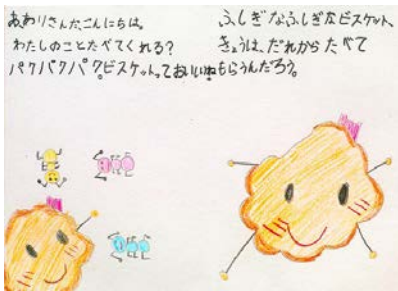 あ、ありさんだ、こんにちは。
わたしのことたべてくれる?
パクパクパク。ビスケットっておいしいね
ふしぎなふしぎなビスケット、
きょうは、だれから たべて
もらうんだろう。